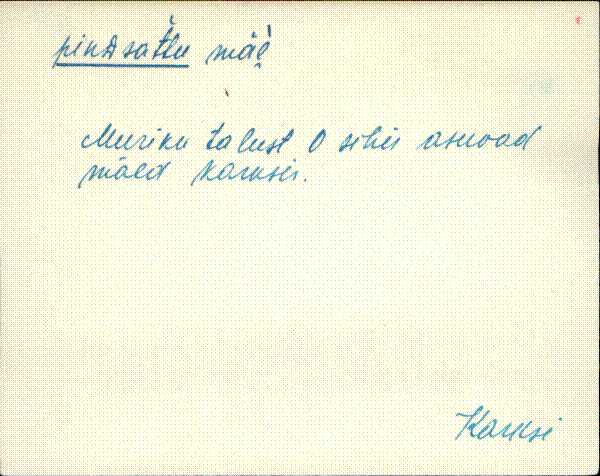 pindsatlu mäè̬
Muriku talust O sihis asuvad
mäed Karksis.
Karksi